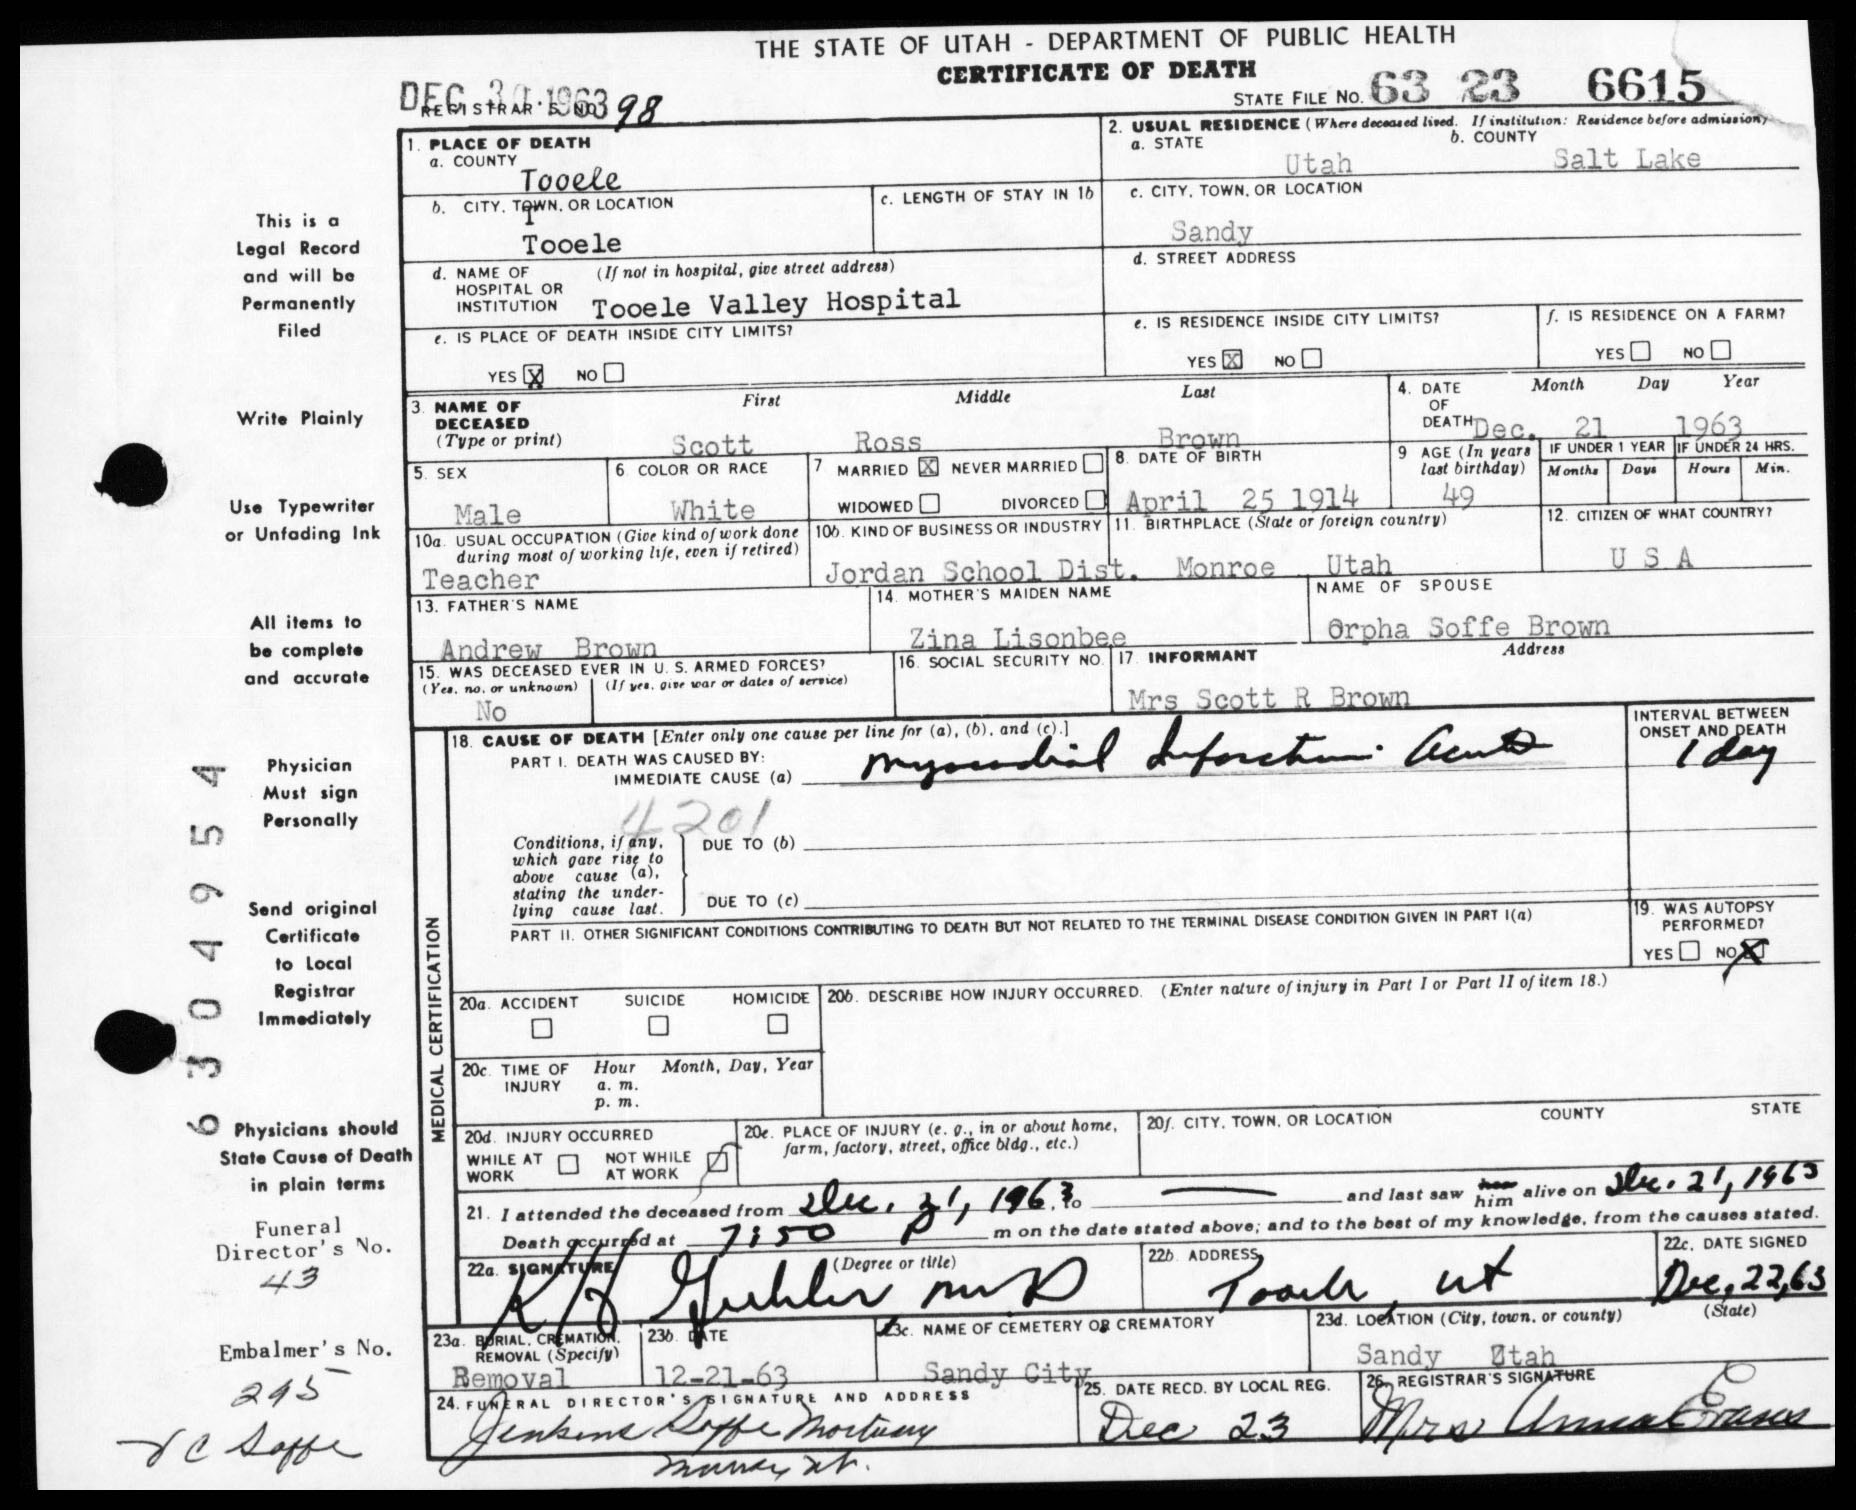 THE STATE OF UTAH - DEPARTMENT OF PUBLIC HEALTH
CERTIFICATE OF DEATH
DEC 30 1963
REGISTRAR'S NO. 98
STATE FILE NO. 63 23 6615
1. PLACE OF DEATH
a. COUNTY
Tooele
b. CITY, TOWN, OR LOCATION
T
Tooele
c. LENGTH OF STAY IN 1b
d. NAME OF HOSPITAL OR INSTITUTION (If not in hospital, give street address)
Tooele Valley Hospital
e. IS PLACE OF DEATH INSIDE CITY LIMITS?
YES X NO
2. USUAL RESIDENCE (Where deceased lived. If institution: Residence before admission)
a. STATE b. COUNTY
Utah Salt Lake
c. CITY, TOWN, OR LOCATION
Sandy
d. STREET ADDRESS
e. IS RESIDENCE INSIDE CITY LIMITS?
YES X NO
f. IS RESIDENCE ON A FARM?
YES NO
3. NAME OF DECEASED (Type or print)
First Middle Last
Scott Ross Brown
4. DATE OF DEATH Month Day Year
Dec. 21 1963
5. SEX
Male
6. COLOR OR RACE
White
7 MARRIED X NEVER MARRIED
WIDOWED DIVORCED
8. DATE OF BIRTH
April 25 1914
9 AGE (In years last birthday)
49
IF UNDER 1 YEAR IF UNDER 24 HRS.
Months Days Hours Min.
10a. USUAL OCCUPATION (Give kind of work done during most of working life, even if retired)
Teacher
10b. KIND OF BUSINESS OR INDUSTRY
Jordan School Dist.
11. BIRTHPLACE (State or foreign country)
Monroe Utah
12. CITIZEN OF WHAT COUNTRY?
U S A
13. FATHER'S NAME
Andrew Brown
14. MOTHER'S MAIDEN NAME
Zina Lisonbee
NAME OF SPOUSE
Orpha Soffe Brown
15. WAS DECEASED EVER IN U. S. ARMED FORCES?
(Yes, no, or unknown) (If yes, give war or dates of service)
No
16. SOCIAL SECURITY NO.
17. INFORMANT Address
Mrs Scott R Brown
MEDICAL CERTIFICATION
18. CAUSE OF DEATH [Enter only one cause per line for (a), (b), and (c).]
PART I. DEATH WAS CAUSED BY:
IMMEDIATE CAUSE (a) Myocardial Infarction Acute
INTERVAL BETWEEN ONSET AND DEATH
1 day
4201
Conditions, if any, which gave rise to above cause (a), stating the underlying cause last.
DUE TO (b)
DUE TO (c)
PART II. OTHER SIGNIFICANT CONDITIONS CONTRIBUTING TO DEATH BUT NOT RELATED TO THE TERMINAL DISEASE CONDITION GIVEN IN PART I(a)
19. WAS AUTOPSY PERFORMED?
YES NO X
20a. ACCIDENT SUICIDE HOMICIDE
20b. DESCRIBE HOW INJURY OCCURRED. (Enter nature of injury in Part I or Part II of item 18.)
20c. TIME OF INJURY Hour Month, Day, Year
a. m.
p. m.
20d. INJURY OCCURRED
WHILE AT WORK NOT WHILE AT WORK
20e. PLACE OF INJURY (e. g., in or about home, farm, factory, street, office bldg., etc.)
20f. CITY, TOWN, OR LOCATION COUNTY STATE
21. I attended the deceased from Dec. 21, 1963, to and last saw her him alive on Dec. 21, 1963
Death occurred at 7:50 p m on the date stated above; and to the best of my knowledge, from the causes stated.
22a. SIGNATURE (Degree or title)
M.D
22b. ADDRESS
Tooele, Ut
22c. DATE SIGNED
Dec, 22, 63
23a. BURIAL, CREMATION, REMOVAL (Specify)
Removal
23b. DATE
12-21-63
23c. NAME OF CEMETERY OR CREMATORY
Sandy City
23d. LOCATION (City, town, or county) (State)
Sandy Utah
24. FUNERAL DIRECTOR'S SIGNATURE AND ADDRESS
Jenkins Soffe Mortuary
Murray Ut.
25. DATE RECD. BY LOCAL REG.
Dec 23
26. REGISTRAR'S SIGNATURE
Mrs Anna Evans
This is a
Legal Record
and will be
Permanently
Filed
Write Plainly
Use Typewriter
or Unfading Ink
All items to
be complete
and accurate
Physician
Must sign
Personally
Send original
Certificate
to Local
Registrar
Immediately
Physicians should
State Cause of Death
in plain terms
6304954
Funeral
Director's No.
43
Embalmer's No.
295
Soffe